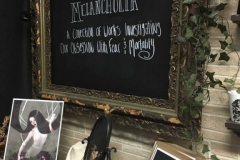 MELANCHOLIA
A COLLECTION OF WORKS INVESTIGATING
OUR OBSESSION WITH FEAR & MORTALITY